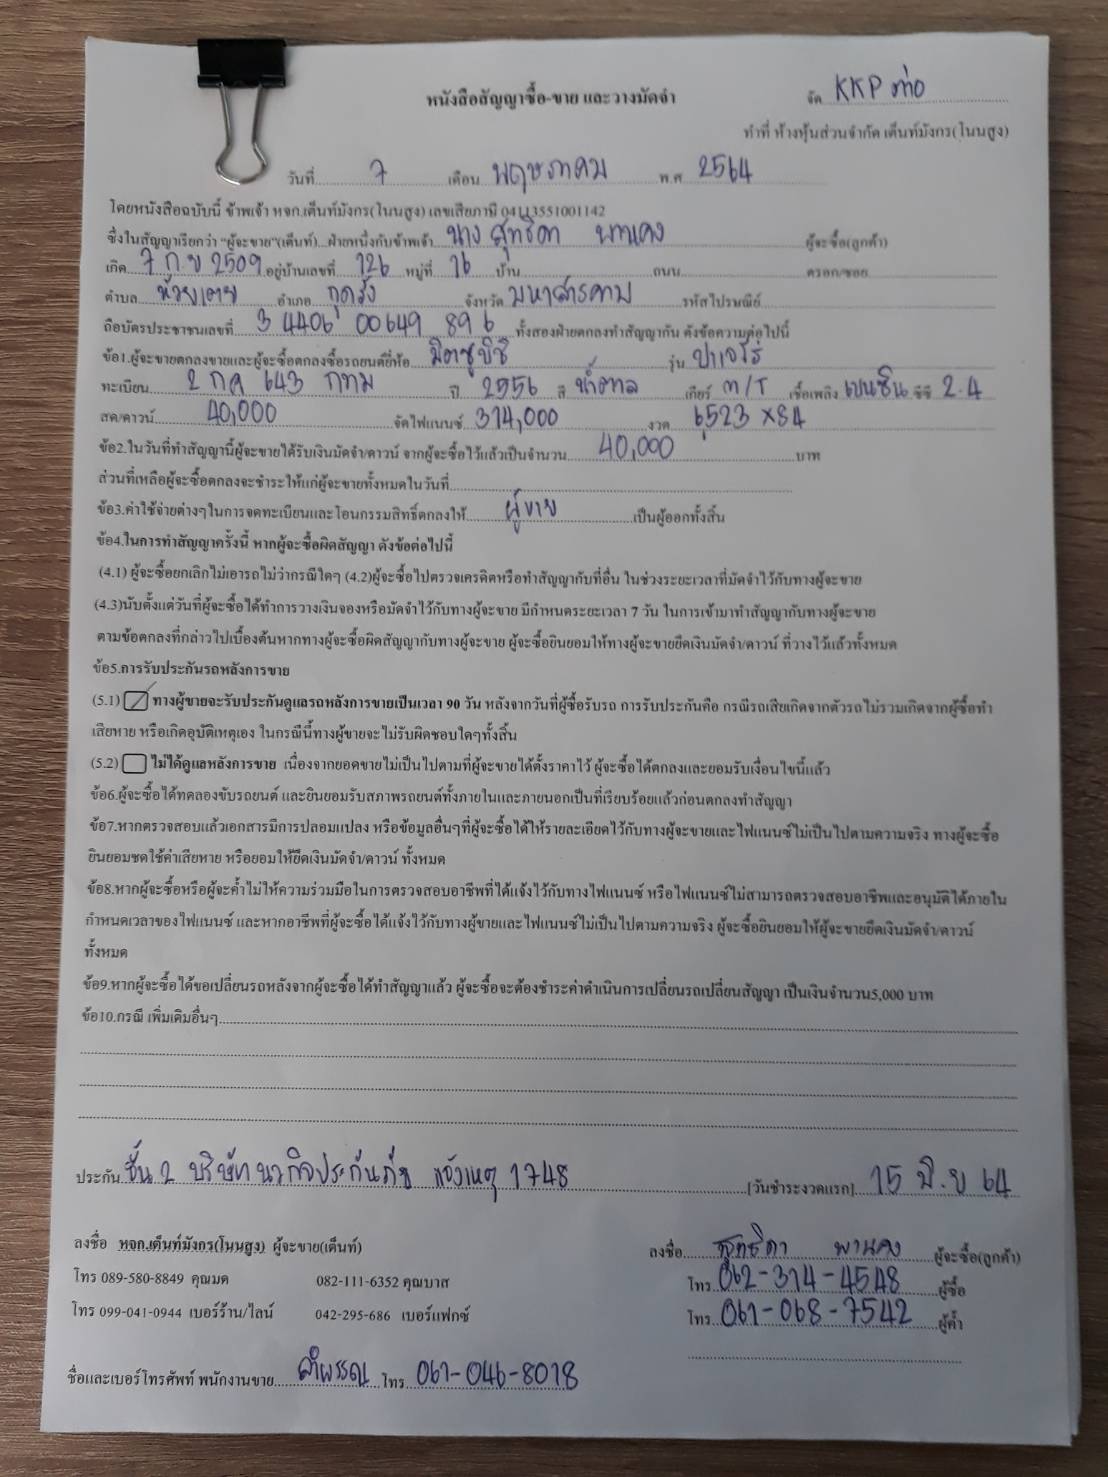 หนังสือสัญญาซื้อ-ขาย และวางมัดจำ
จัด KKP ต่อ
ทำที่ ห้างหุ้นส่วนจำกัด เต็นท์มังกร(โนนสูง)
วันที่ 7 เดือน พฤษภาคม พ.ศ 2564
โดยหนังสือฉบับนี้ ข้าพเจ้า หจก.เต็นท์มังกร(โนนสูง) เลขเสียภาษี 04113551001142
ซึ่งในสัญญาเรียกว่า "ผู้จะขาย"(เต็นท์)...ฝ่ายหนึ่งกับข้าพเจ้า นาง สุทธิดา พานคง ผู้จะซื้อ(ลูกค้า)
เกิด 7 ก.ย 2509 อยู่บ้านเลขที่ 126 หมู่ที่ 16 บ้าน ถนน ตรอก/ซอย
ตำบล ห้วยเตย อำเภอ กุดรัง จังหวัด มหาสารคาม รหัสไปรษณีย์
ถือบัตรประชาชนเลขที่ 3 4406 00649 896 ทั้งสองฝ่ายตกลงทำสัญญากัน ดังข้อความต่อไปนี้
ข้อ1.ผู้จะขายตกลงขายและผู้จะซื้อตกลงซื้อรถยนต์ยี่ห้อ มิตซูบิชิ รุ่น ปาเจโร่
ทะเบียน 2 กศ 643 กทม ปี 2556 สี น้ำตาล เกียร์ m/T เชื้อเพลิง เบนซิน ซีซี 2.4
สด/ดาวน์ 40,000 จัดไฟแนนซ์ 314,000 งวด 6,523 x84
ข้อ2.ในวันที่ทำสัญญานี้ผู้จะขายได้รับเงินมัดจำ/ดาวน์ จากผู้จะซื้อไว้แล้วเป็นจำนวน 40,000 บาท
ส่วนที่เหลือผู้จะซื้อตกลงจะชำระให้แก่ผู้จะขายทั้งหมดในวันที่
ข้อ3.ค่าใช้จ่ายต่างๆในการจดทะเบียนและโอนกรรมสิทธิ์ตกลงให้ ผู้ขาย เป็นผู้ออกทั้งสิ้น
ข้อ4.ในการทำสัญญาครั้งนี้ หากผู้จะซื้อผิดสัญญา ดังข้อต่อไปนี้
(4.1) ผู้จะซื้อยกเลิกไม่เอารถไม่ว่ากรณีใดๆ (4.2)ผู้จะซื้อไปตรวจเครดิตหรือทำสัญญากับที่อื่น ในช่วงระยะเวลาที่มัดจำไว้กับทางผู้จะขาย
(4.3)นับตั้งแต่วันที่ผู้จะซื้อได้ทำการวางเงินจองหรือมัดจำไว้กับทางผู้จะขาย มีกำหนดระยะเวลา 7 วัน ในการเข้ามาทำสัญญากับทางผู้จะขาย
ตามข้อตกลงที่กล่าวไปเบื้องต้นหากทางผู้จะซื้อผิดสัญญากับทางผู้จะขาย ผู้จะซื้อยินยอมให้ทางผู้จะขายยึดเงินมัดจำ/ดาวน์ ที่วางไว้แล้วทั้งหมด
ข้อ5.การรับประกันรถหลังการขาย
(5.1) ทางผู้ขายจะรับประกันดูแลรถหลังการขายเป็นเวลา 90 วัน หลังจากวันที่ผู้ซื้อรับรถ การรับประกันคือ กรณีรถเสียเกิดจากตัวรถ ไม่รวมเกิดจากผู้ซื้อทำ
เสียหาย หรือเกิดอุบัติเหตุเอง ในกรณีนี้ทางผู้ขายจะไม่รับผิดชอบใดๆทั้งสิ้น
(5.2) ไม่ได้ดูแลหลังการขาย เนื่องจากยอดขายไม่เป็นไปตามที่ผู้จะขายได้ตั้งราคาไว้ ผู้จะซื้อได้ตกลงและยอมรับเงื่อนไขนี้แล้ว
ข้อ6.ผู้จะซื้อได้ทดลองขับรถยนต์ และยินยอมรับสภาพรถยนต์ทั้งภายในและภายนอกเป็นที่เรียบร้อยแล้วก่อนตกลงทำสัญญา
ข้อ7.หากตรวจสอบแล้วเอกสารมีการปลอมแปลง หรือข้อมูลอื่นๆที่ผู้จะซื้อได้ให้รายละเอียดไว้กับทางผู้จะขายและไฟแนนซ์ไม่เป็นไปตามความจริง ทางผู้จะซื้อ
ยินยอมชดใช้ค่าเสียหาย หรือยอมให้ยึดเงินมัดจำ/ดาวน์ ทั้งหมด
ข้อ8.หากผู้จะซื้อหรือผู้จะค้ำไม่ให้ความร่วมมือในการตรวจสอบอาชีพที่ได้แจ้งไว้กับทางไฟแนนซ์ หรือไฟแนนซ์ไม่สามารถตรวจสอบอาชีพและอนุมัติได้ภายใน
กำหนดเวลาของไฟแนนซ์ และหากอาชีพที่ผู้จะซื้อได้แจ้งไว้กับทางผู้ขายและไฟแนนซ์ไม่เป็นไปตามความจริง ผู้จะซื้อยินยอมให้ผู้จะขายยึดเงินมัดจำ/ดาวน์
ทั้งหมด
ข้อ9.หากผู้จะซื้อได้ขอเปลี่ยนรถหลังจากผู้จะซื้อได้ทำสัญญาแล้ว ผู้จะซื้อจะต้องชำระค่าดำเนินการเปลี่ยนรถเปลี่ยนสัญญา เป็นเงินจำนวน5,000 บาท
ข้อ10.กรณี เพิ่มเติมอื่นๆ
ประกัน ชั้น 2 บริษัท นวกิจประกันภัย แจ้งเหตุ 1748 [วันชำระงวดแรก] 15 มิ.ย 64
ลงชื่อ หจก.เต็นท์มังกร(โนนสูง) ผู้จะขาย(เต็นท์) ลงชื่อ สุทธิดา พานคง ผู้จะซื้อ(ลูกค้า)
โทร 089-580-8849 คุณมด 082-111-6352 คุณบาส โทร 062-314-4548 ผู้ซื้อ
โทร 099-041-0944 เบอร์ร้าน/ไลน์ 042-295-686 เบอร์แฟกซ์ โทร 061-068-7542 ผู้ค้ำ
ชื่อและเบอร์โทรศัพท์ พนักงานขาย อำพรรณ โทร 061-046-8018